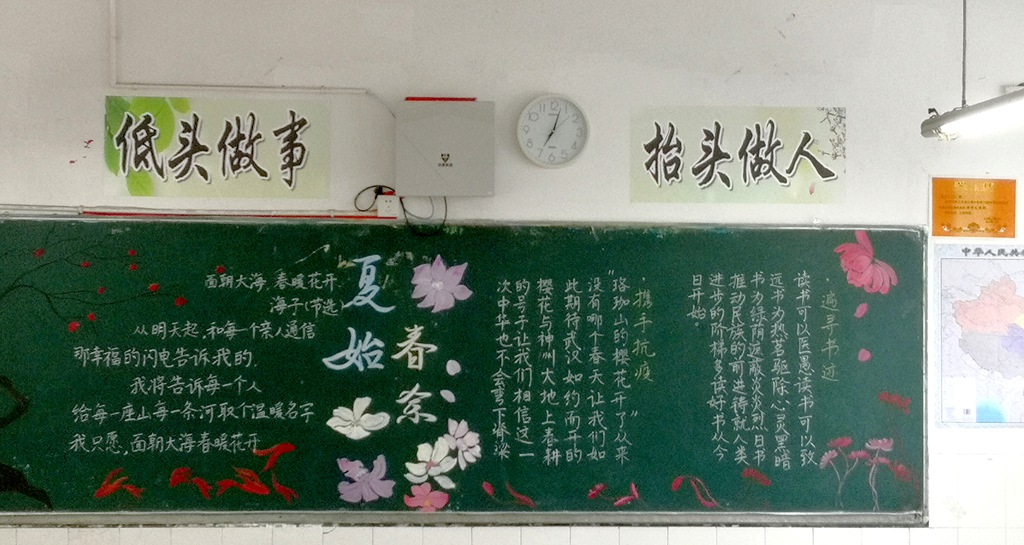 低头做事
抬头做人
面朝大海,春暖花开.
海子(节选
从明天起,和每一个亲人通信
那幸福的闪电告诉我的.
我将告诉每一个人
给每一座山每一条河取个温暖名字
我只愿,面朝大海春暖花开
夏始
春余
·携手抗疫
"珞珈山的樱花开了"从来
没有哪个春天让我们如
此期待武汉如约而开的
樱花与神州大地上春耕
的号子让我们相信这一
次中华也不会弯下脊梁
·遍寻书迹
读书可以医愚读书可以致
远书为热茗驱除心灵黑暗
书为绿荫遮蔽炎炎烈日书
推动民族的前进待就人类
进步的阶梯多读好书从今
日开始。
中华人民共